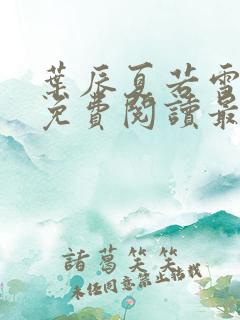 葉辰夏若雪
免費閱讀最
諸葛笑笑
未經同意禁止轉載